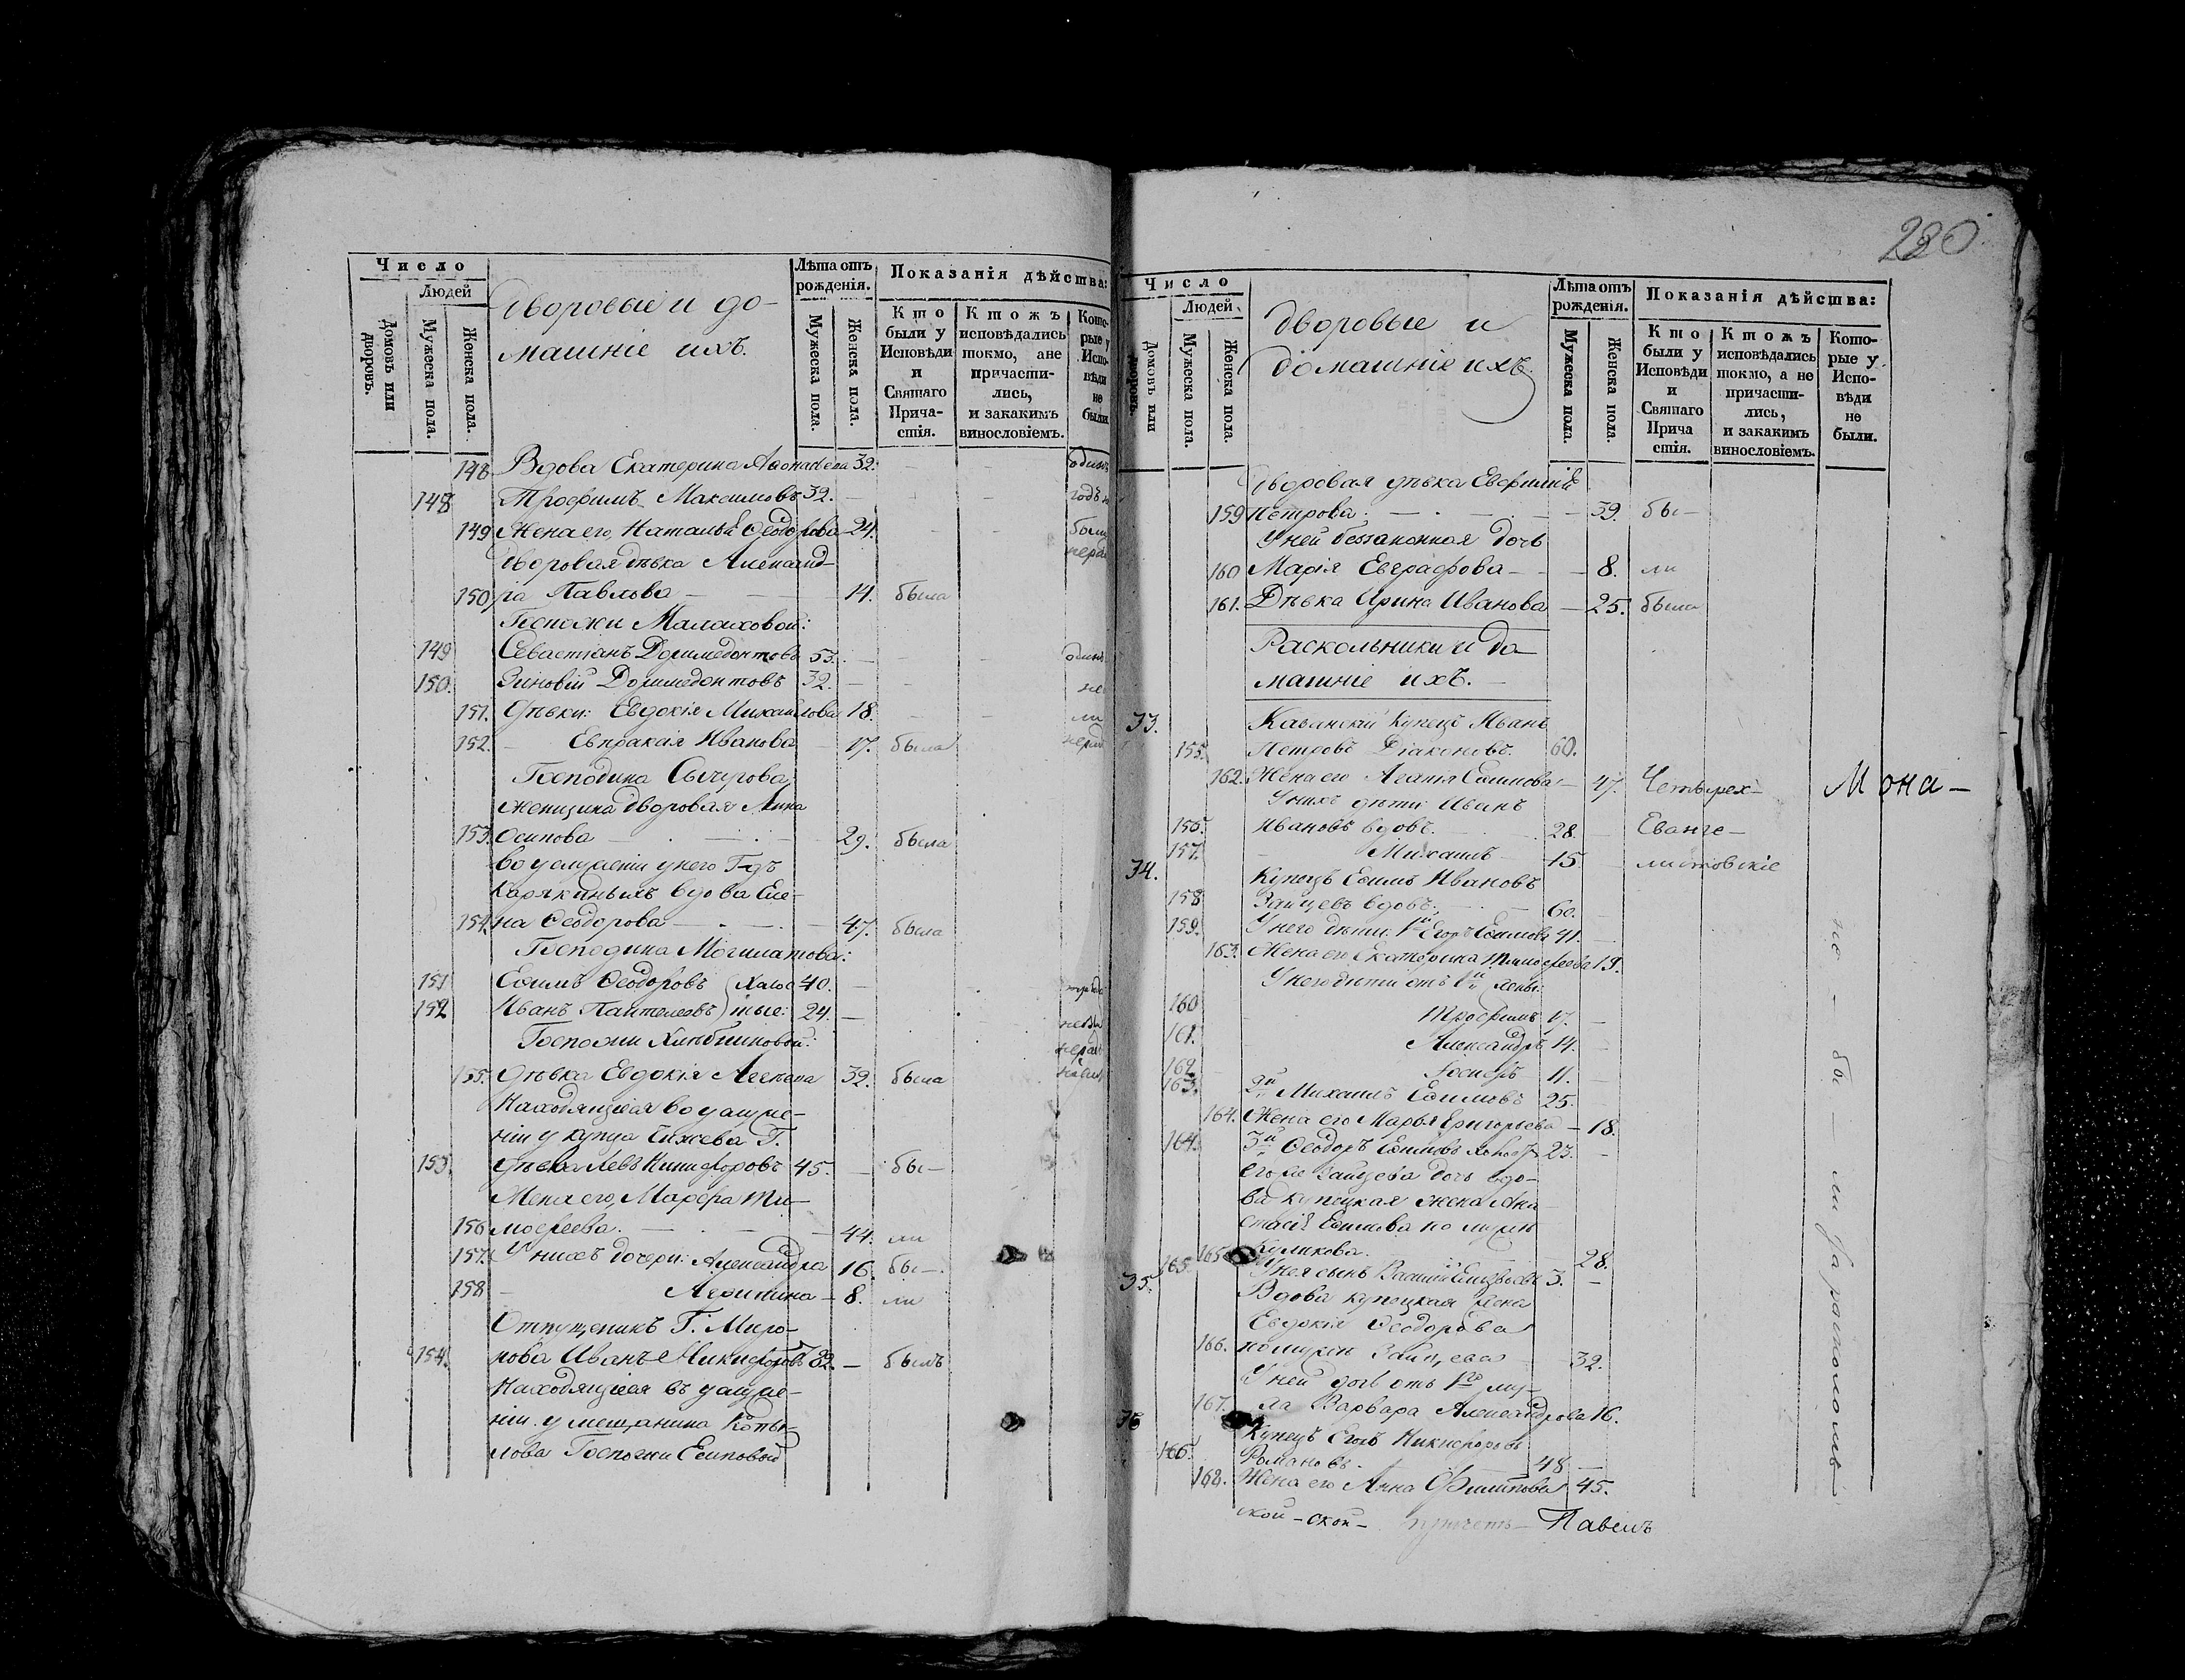 280
Число
Людей
Домовъ или дворовъ.
Мужеска пола.
Женска пола.
Дворовые и до-
машніе ихъ.
Лѣта отъ рожденія.
Мужеска пола.
Женска пола.
Показанія дѣйства:
Кто были у Исповѣди и Святаго Прича-стія.
Ктожъ исповѣдались токмо, ане причасти-лись, и закакимъ винословіемъ.
Кото-рые у Испо-вѣди не были
148 Вдова Екатерина 32.
148 Трофимъ Максимовъ 32. —
149 Жена его Наталья Ѳеодорова 24.
Дворовая дѣвка Александ-
150 ра Павлова — 14. была
Госпожи Малаховой:
149 Севастіанъ Доримедонтовъ 53. —
150. Зиновій Доримедонтовъ 32. —
151. Дѣвки: Евдокія Михайлова 18.
152. — Евпраксія Иванова — 17. была
Господина
женщина дворовая Анна
153. Осипова — 29. была
Во услуженіи у него Г-дъ
Карякиныхъ вдова Еле-
154. на Ѳеодорова — 47. была
Господина Могилатова:
151 Ефимъ Ѳеодоровъ 40. —
152 Иванъ Пантелеевъ 24. —
Госпожи
155. Дѣвка Евдокія 32. была
Находящіеся во услуже-
ніи у купца Г.
153. Левъ Никифоровъ 45. — бы-
Жена его, Марѳа Ти-
156 моѳеева. — 44. ли
157. У нихъ дочери: Александра 16. бы-
158 — — 8. ли
Отпущеникъ Г. Миро-
154. нова Иванъ Никифоровъ 82. — былъ
Находящіеся въ услуже-
ніи у мещанина Коты-
лова Госпожи Есиповой
Число
Людей
Домовъ или дворовъ.
Мужеска пола.
Женска пола.
Дворовые и
домашніе ихъ.
Лѣта отъ рожденія.
Мужеска пола.
Женска пола.
Показанія дѣйства:
Кто были у Исповѣди и Святаго Прича стія.
Ктожъ исповѣдались токмо, а не причасти-лись, и закакимъ винословіемъ.
Кото-рые у Испо-вѣди не были.
Дворовая дѣвка Евфимія
159 Петрова. — 39. бы-
У ней беззаконная дочь
160 Марія Евграфова — 8. ли
161. Дѣвка Ирина Иванова — 25. была
Раскольники и до-
машніе ихъ.
33. Казанскій купецъ Иванъ
155. Петровъ Діаконовъ. 60.
162. Жена его Агапія — 47. Четырех- Мона-
У нихъ дѣти: Иванъ
156. Ивановъ вдовъ. 28. — Еванге-
157. — Михаилъ 15. — листовскіе
34. Купецъ Ефимъ Ивановъ
158 Зайцевъ вдовъ. — 60. —
159. У него дѣти: 1й Егоръ Ефимовъ 41. —
163. Жена его Екатерина Тимофеева 19.
У него дѣти отъ 1й жены:
160 — Трофимъ 17. —
161. — Александръ 14. —
162 — Іосифъ 11. —
163. 2й Михаилъ Ефимовъ 25. —
164. Жена его Марья Григорьева — 18.
164. 3й Ѳеодоръ Ефимовъ 23. —
Его же Зайцева дочь вдо-
ва купецкая жена Ана-
стасія Ефимова по мужѣ
165 Куликова. — 28.
165 У нея сынъ Василій 3. —
35. Вдова купецкая жена
Евдокія Ѳеодорова
166. по мужѣ Зайцева 32.
У ней дочь отъ 1го му-
167. жа Варвара Александрова 16.
36 Купецъ Егоръ Никифоровъ
166. Романовъ. 48 —
168. Жена его Анна Филипова 45.
не — бы — ли за расколомъ
Павелъ